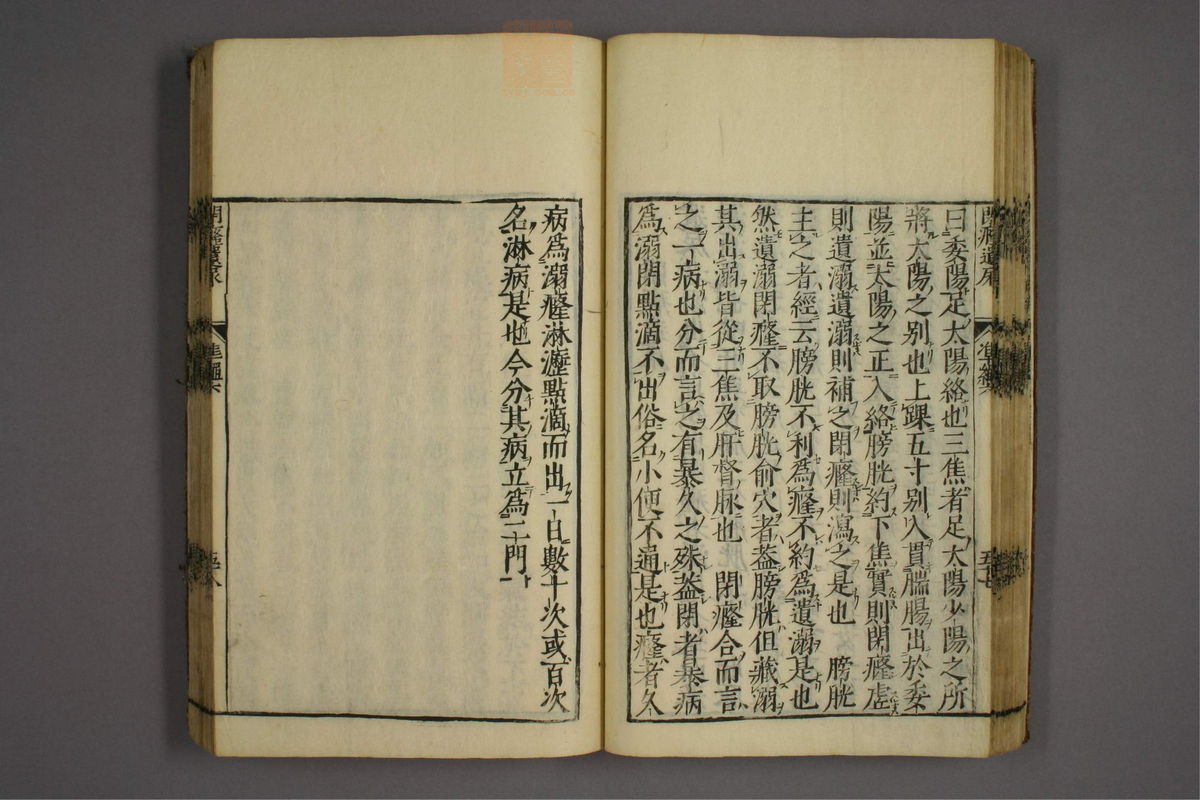 曰委陽足太陽絡也三焦者足太陽少陽之所
將太陽之别也上踝五寸别入貫腨腸出於委
陽並太陽之正入絡膀胱約下焦實則閉癃虚
則遺溺遺溺則補之閉癃則瀉之是也　膀胱
主之者經云膀胱不利爲癃不約爲遺溺是也
然遺溺閉癃不取膀胱俞穴者葢膀胱但藏溺
其出溺皆從三焦及肝督脉也　閉癃合而言
之一病也分而言之有暴久之殊葢閉者暴病
爲溺閉點滴不出俗名小便不通是也癃者久
病爲溺癃淋瀝點滴而出一日數十次或百次
名淋病是也今分其病立爲二門